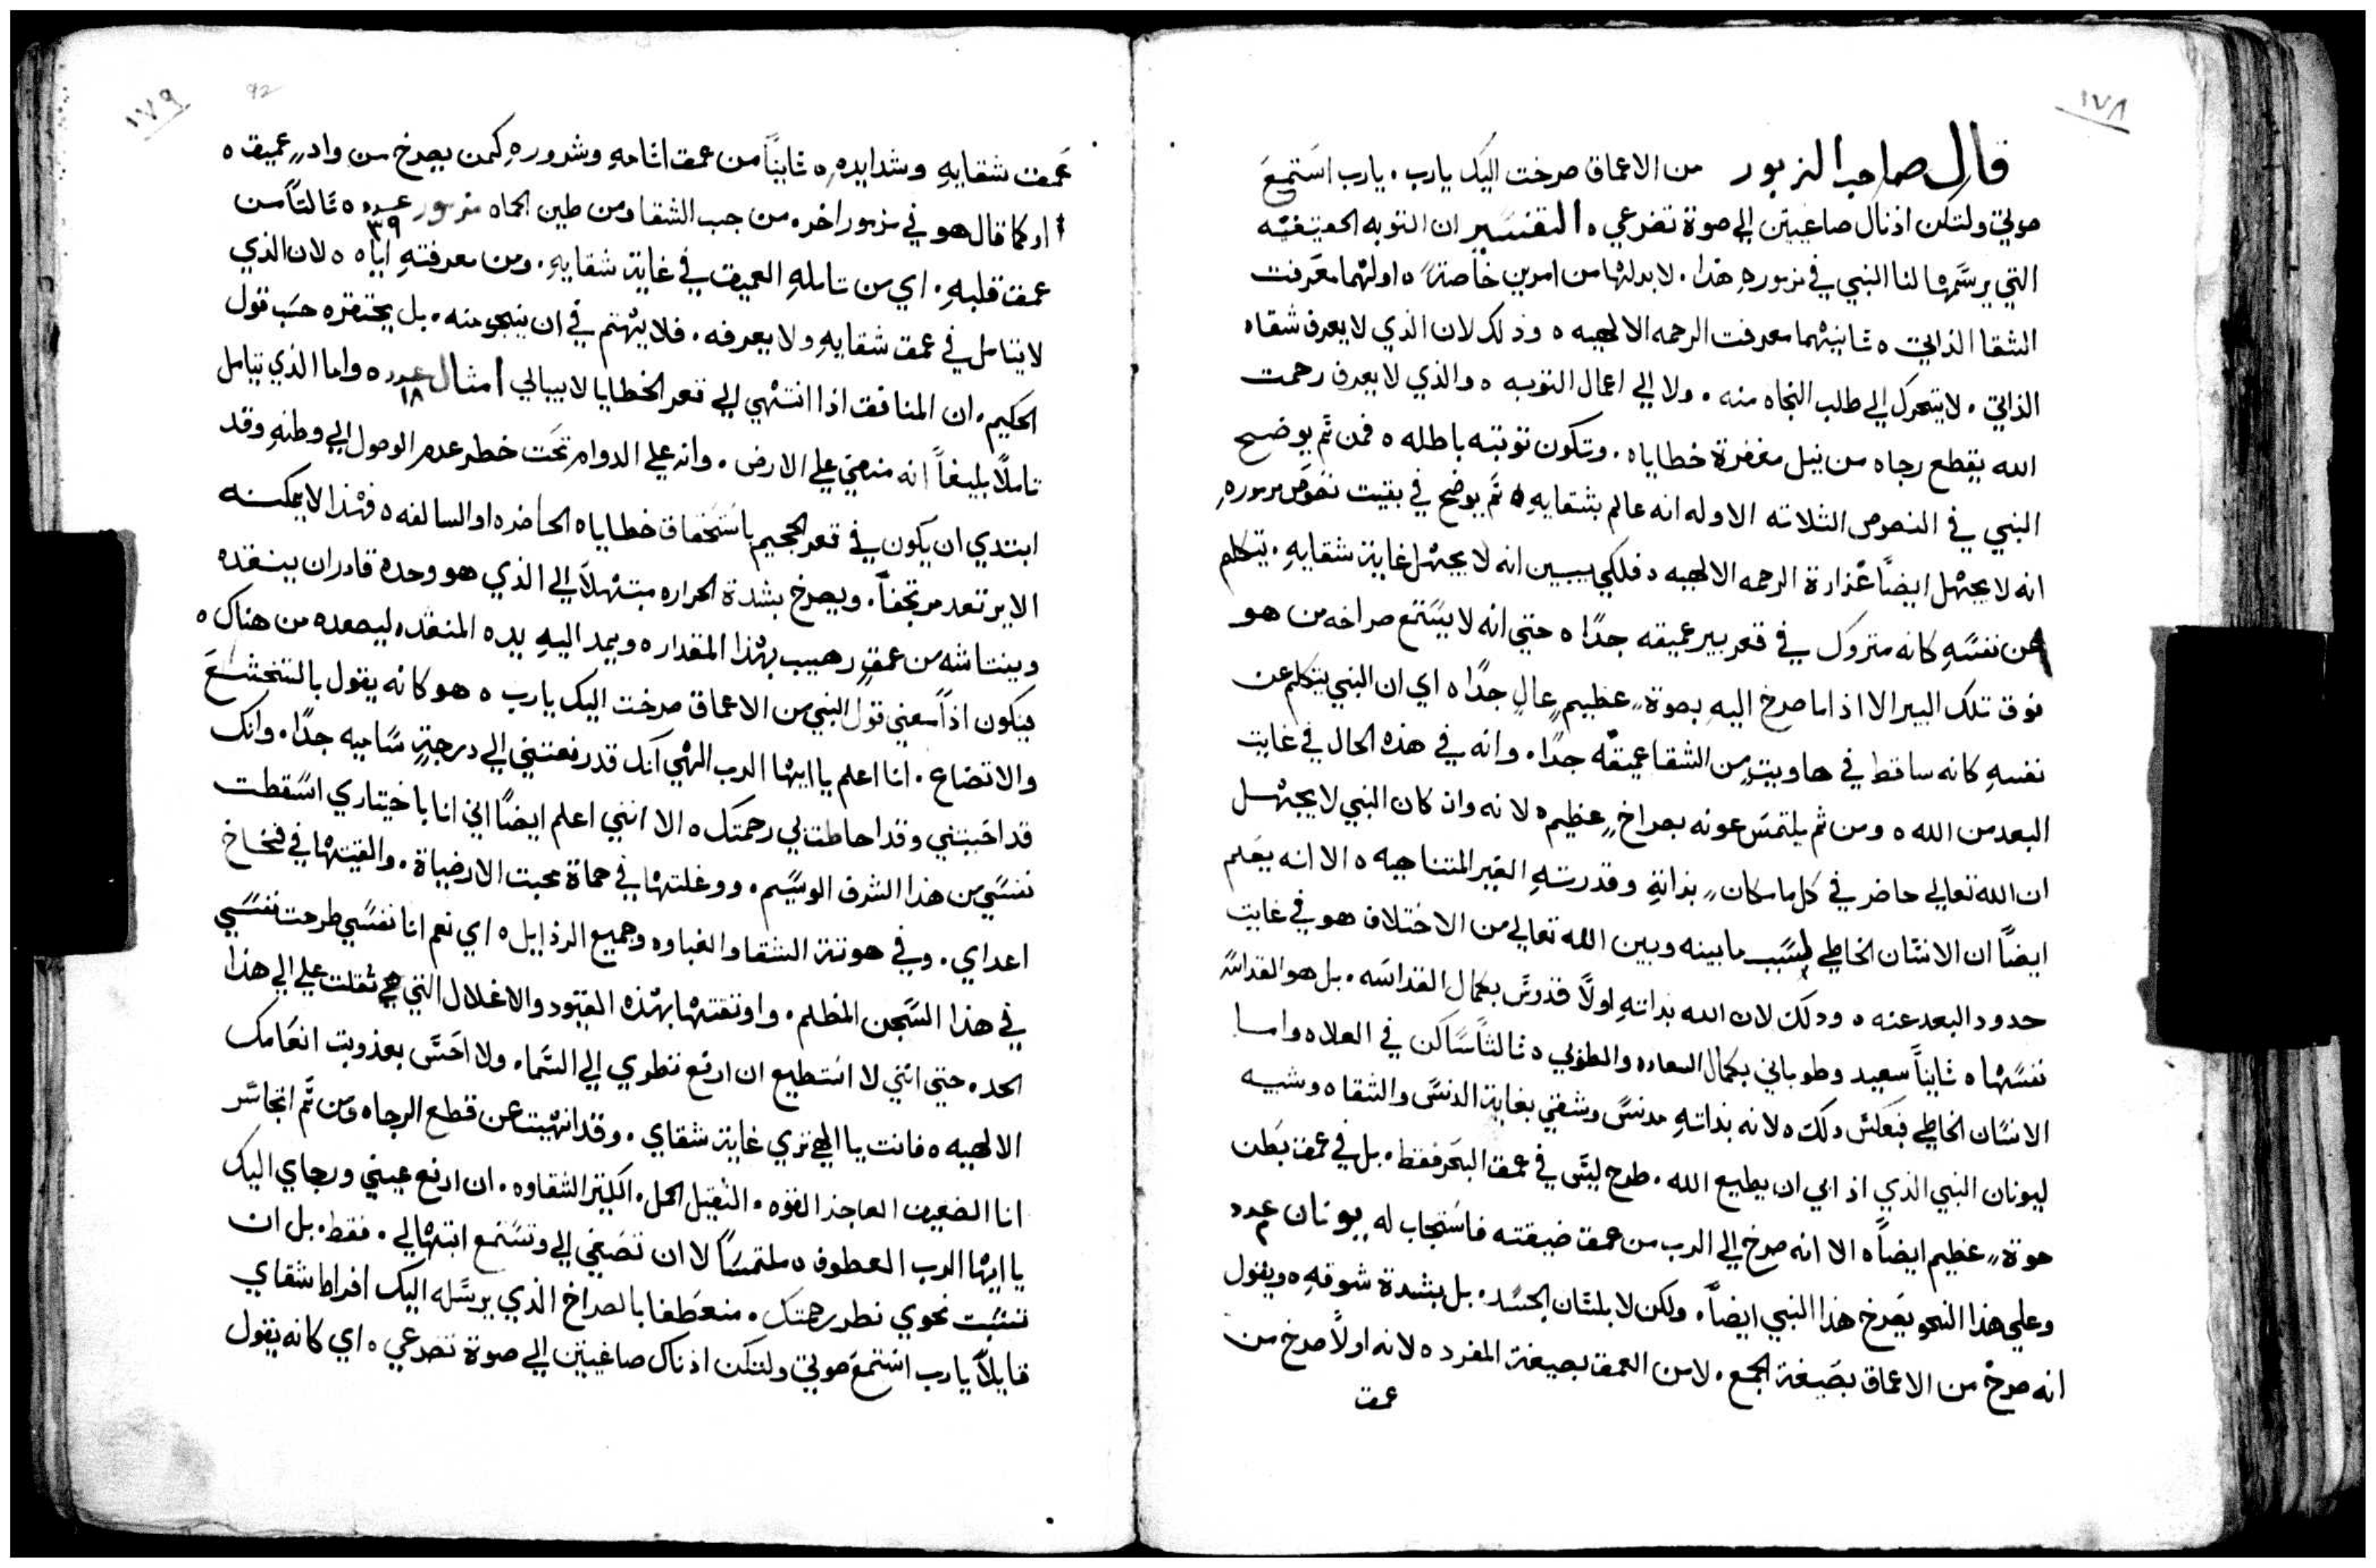 ١٧٨
قال صاحب الزبور من الاعماق صرخت اليك يارب. يارب استمع
صوتي ولتكن اذناك صاغيتين إلي صوة تضرعي ه التفسير ان التوبه الحقيقيه
التي يرسمها لنا النبي في مزموره هذا. لا بد لها من امرين خاصةً ه اولهما معرفت
الشقا الذاتي ه ثانيهما معرفت الرحمه الالهيه ه وذلك لان الذي لا يعرف شقاه
الذاتي. لا يتحرك إلي طلب النجاه منه. ولا إلي اعمال التوبه ه والذي لا يعرف رحمت
الله يقطع رجاه من نيل مغفرة خطاياه. وتكون توبته باطله ه فمن ثم يوضح
النبي في النصوص الثلاثه الاوله انه عالم بشقايهِ ه ثم يوضح في بقيت نصوص مزمورهِ
انه لا يجهل ايضاً غزارة الرحمه الالهيه ه فلكي يبين انه لا يجهل غاية شقايهِ. يتكلم
عن نفسهِ كانه متروك في قعر بير عميقه جداً ه حتي انه لا يستمع صراخه من هو
فوق تلك البير الا اذا ما صرخ اليهِ بصوة عظيم عالٍ جداً ه اي ان النبي يتكلم عن
نفسهِ كانه ساقط في هاويتٍ من الشقا عميقه جداً. وانه في هذه الحال في غايت
البعد من الله ه ومن ثم يلتمس عونه بصراخ عظيم ه لانه وان كان النبي لا يجهل
ان الله تعالي حاضر في كل ما مكان بذاتهِ وقدرتهِ الغير المتناهيه ه الا انه يعلم
ايضاً ان الانسان الخاطي لسبب ما بينه وبين الله تعالي من الاختلاف هو في غايت
حدود البعد عنه ه وذلك لان الله بذاتهِ اولاً قدوس بكمال القداسه. بل هو القداسة
نفسها ه ثانياً سعيد وطوباني بكمال السعاده والطوبي ه ثالثاً ساكن في العلاه واما
الانسان الخاطي فبعكس ذلك ه لانه بذاتهِ مدنس وشقي بغاية الدنس والشقاه وشبيه
ليونان النبي الذي اذ ابي ان يطيع الله. طرح ليس في عمق البحر فقط. بل في عمق بطن
حوة عظيم ايضاً ه الا انه صرخ إلي الرب من عمق ضيقته فاستجاب له يونان عدد
وعلي هذا النحو يصرخ هذا النبي ايضاً. ولكن لا بلسان الجسد. بل بشدة شوقهِ ه ويقول
انه صرخ من الاعماق بصيغة الجمع. لا من العمق بصيغة المفرد ه لانه اولاً صرخ من
عمق
١٧٩
92
عمق شقايهِ وشدايده ه ثانياً من عمق اثامهِ وشرورهِ كمن يصرخ من وادٍ عميق ه
او كما قال هو في مزمور اخر ه من جب الشقا ومن طين الحماه مزمور عدد ٣٩ ه ثالثاً من
عمق قلبهِ. اي من تاملهِ العميق في غاية شقايهِ. ومن معرفتهِ اياه ه لان الذي
لا يتامل في عمق شقايهِ ولا يعرفه. فلا يهتم في ان ينجو منه. بل يحتقره حسب قول
الحكيم. ان المنافق اذا انتهي إلي قعر الخطايا لا يبالي امثال عدد ١٨ ه واما الذي يتامل
تاملاً بليغاً انه منفي علي الارض. وانه علي الدوام تحت خطر عدم الوصول إلي وطنهِ وقد
ابتدي ان يكون في قعر الجحيم باستحقاق خطاياه الحاضره او السالفه ه فهذا لا يمكنه
الا يرتعد مرتجفاً. ويصرخ بشدة الحراره مبتهلاً إلي الذي هو وحده قادر ان ينقذه
وينتاشه من عمقٍ رهيب بهذا المقدار ه ويمد اليهِ يده المنقذه ليصعده من هناك ه
فيكون اذاً معني قول النبي من الاعماق صرخت اليك يارب ه هو كانه يقول بالتخشع
والاتضاع. انا اعلم يا ايها الرب الهي انك قد رفعتني إلي درجةٍ ساميه جداً. وانك
قد احببتني وقد احاطت بي رحمتك ه الا انني اعلم ايضاً اني انا باختياري اسقطت
نفسي من هذا الشرف الوسيم. ووغلتها في حماة محبت الارضياة. والقيتها في فخاخ
اعداي. وفي هوتة الشقا والغباوه وجميع الرذايل ه اي نعم انا نفسي طرحت نفسي
في هذا السجن المظلم. واوثقتها بهذه القيود والاغلال التي ثقلت علي إلي هذا
الحد ه حتي انني لا استطيع ان ارفع نظري إلي السما. ولا احس بعذوبت انعامك
الالهيه ه فانت يا الهي تري غاية شقاي. وقد انهيت عن قطع الرجاه ومن ثم اتجاسر
انا الضعيف العاجز القوه. الثقيل الحمل. الكثير الشقاوه. ان ارفع عيني ورجاي اليك
يا ايها الرب العطوف ه ملتمساً لا ان تصغي إلي وتستمع ابتهالي. فقط. بل ان
تثبت نحوي نظر رحمتك. منعطفا بالصراخ الذي يرسله اليك افراط شقاي
قايلاً يارب استمع صوتي ولتكن اذناك صاغيتين إلي صوة تضرعي ه اي كانه يقول